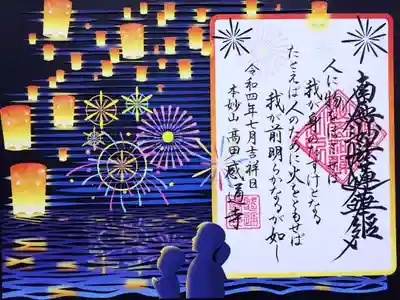 南無妙法蓮華経
人に物をほどこせば
我が身のたすけとなる
たとえば人のために火をともせば
我が前明らかなるが如し
令和四年七月吉祥日
本妙山 髙田 感通寺